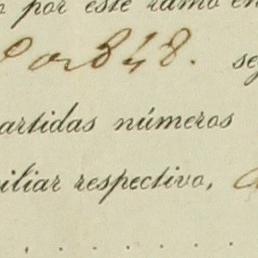 por este ramo en
por 848. se
artidas números
iliar respectivo,